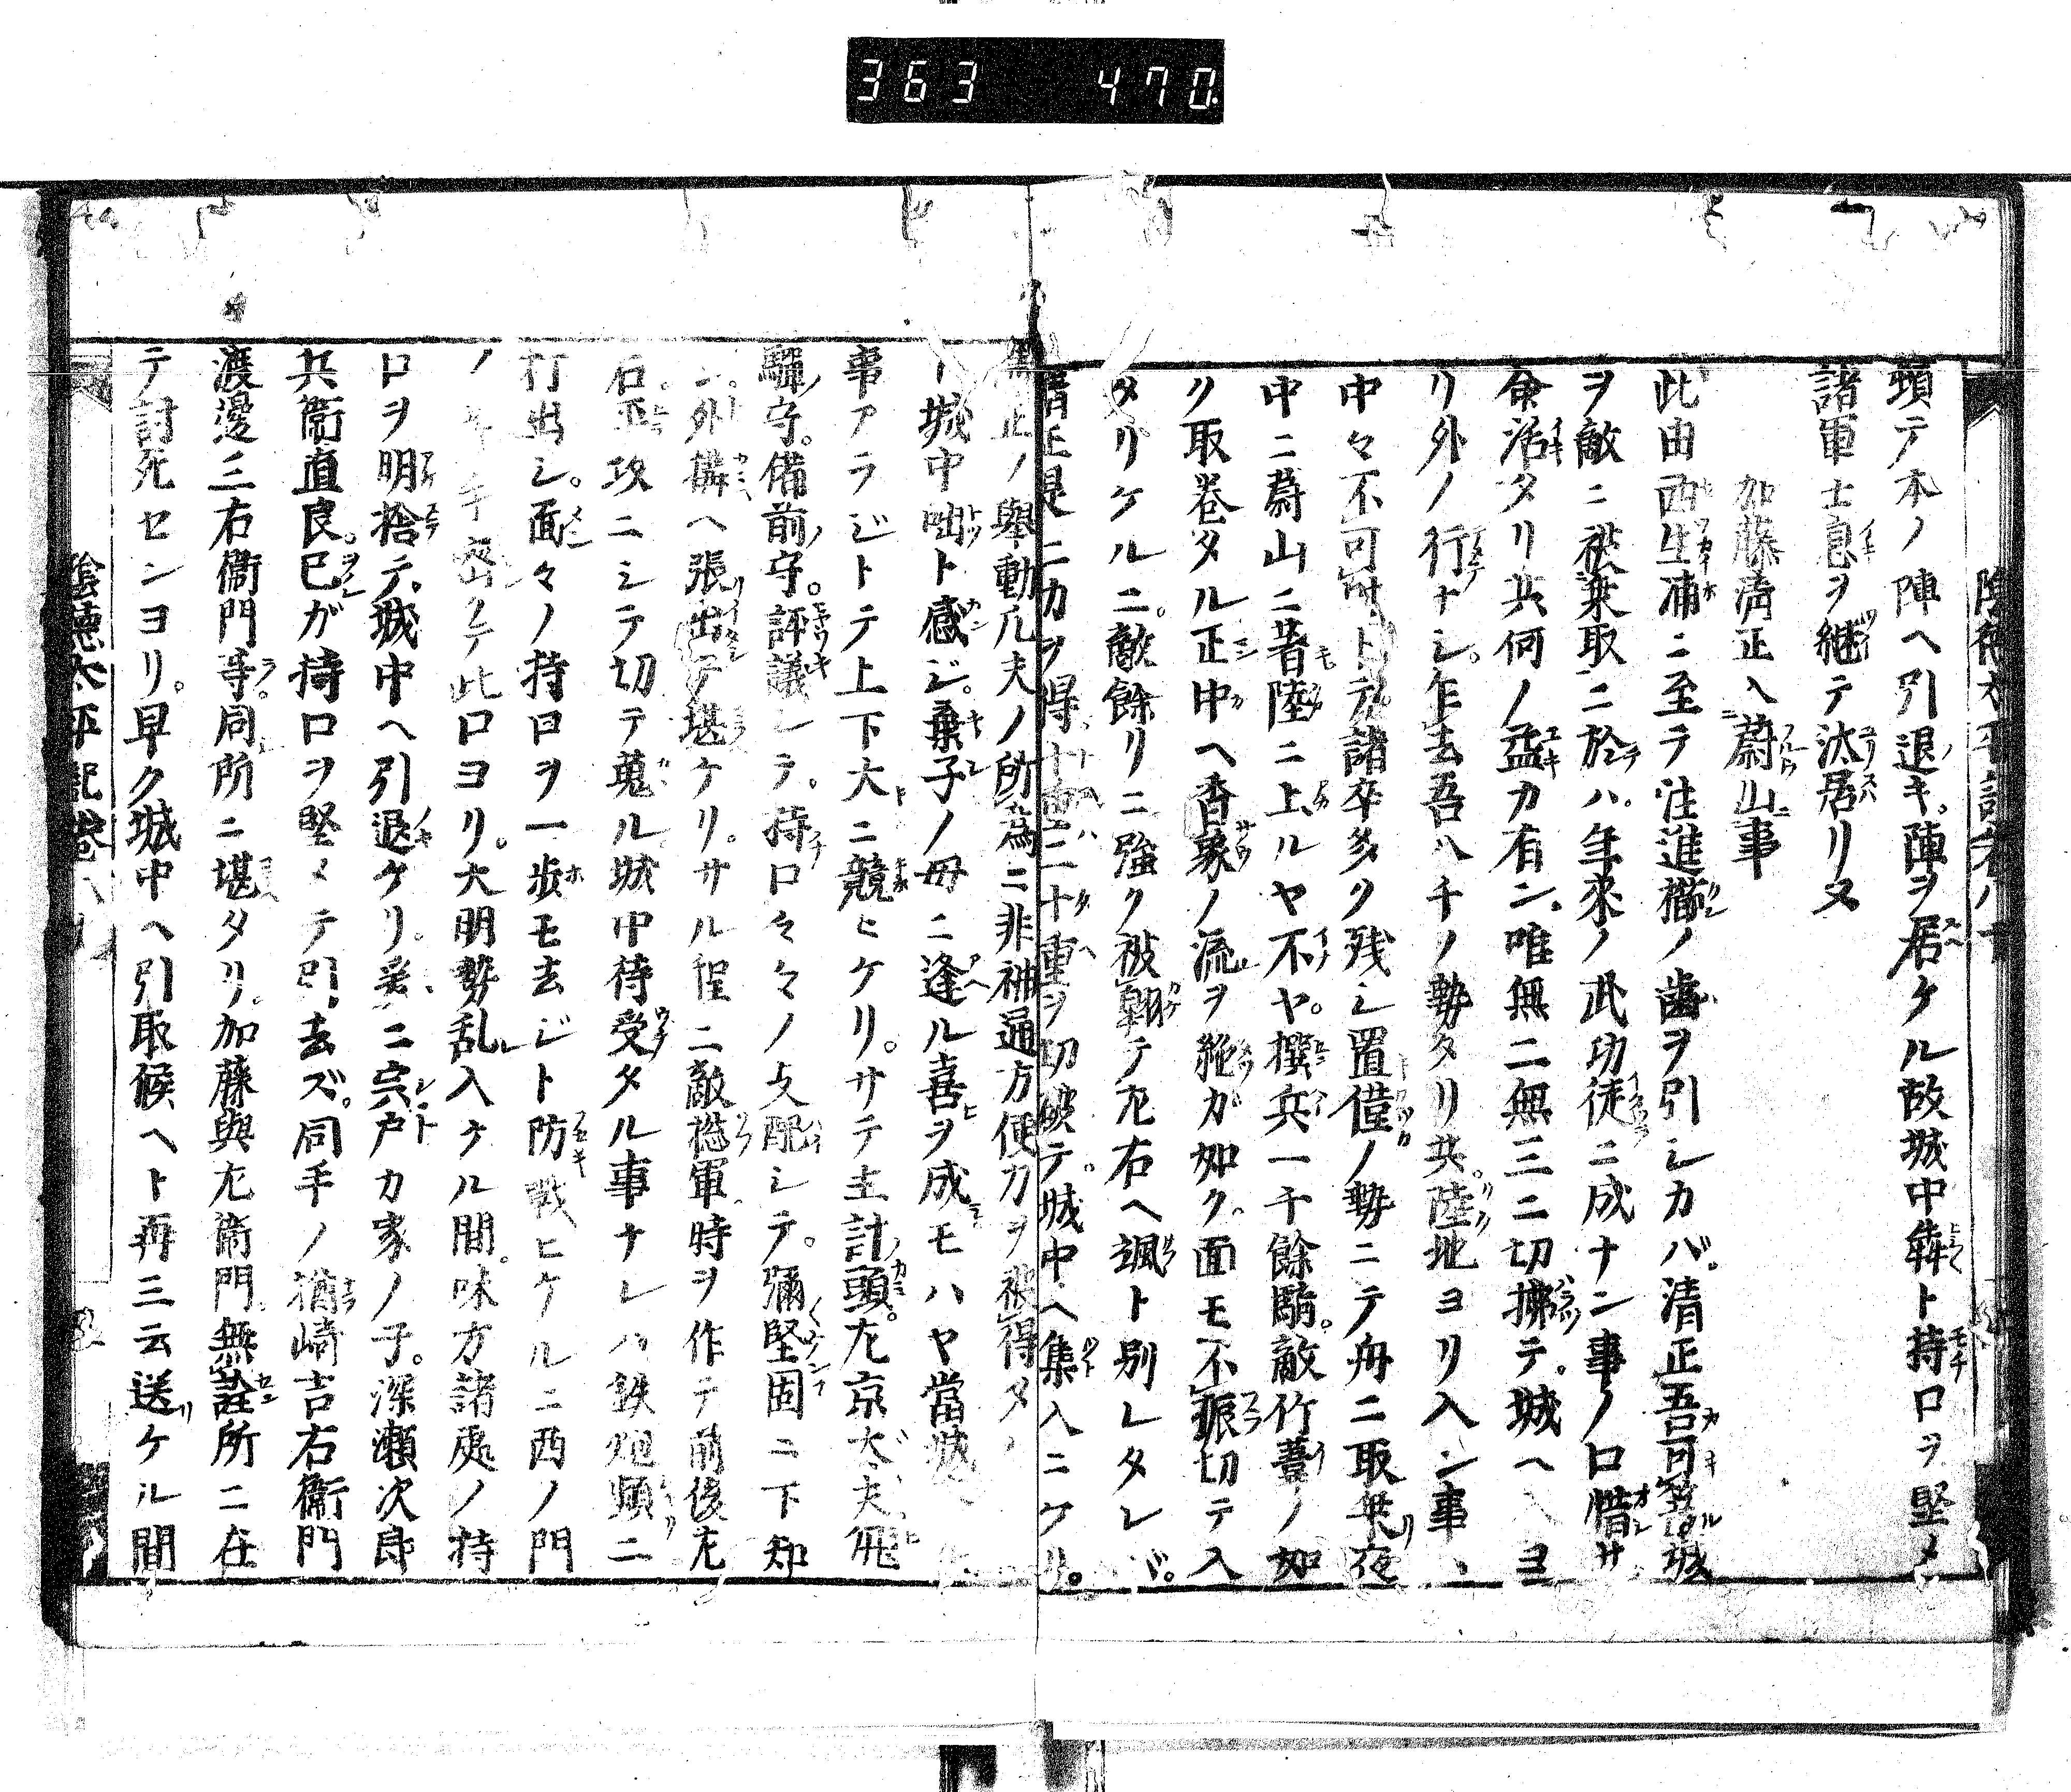 363 470
頭テ本ノ陣ヘ引退キ。陣ヲ居ケル故城中犇ト持口ヲ堅メ
諸軍士息ヲ継テ汰居リヌ
加藤清正入蔚山事
此由西生浦ニ至テ注進櫛ノ歯ヲ引シカバ。清正吾可篭城
ヲ敵ニ被乗取ニ於ハ。年来ノ武功徒ニ成ナン事ノ口惜サ
命活タリ共何ノ益カ有ン。唯無二無三ニ切拂テ。城ヘ入ヨ
リ外ノ行ナシ。乍去吾八千ノ勢タリ共。陸地ヨリ入ン事ハ
中々不可叶トテ諸卒多ク残シ置僅ノ勢ニテ舟ニ取乗夜
中ニ蔚山ニ着陸ニ上ルヤ不ヤ。撰兵一千餘騎。敵竹葦ノ如
ク取巻タル正中ヘ香象ノ流ヲ絶ガ如ク。面モ不振切テ入
タリケルニ。敵餘リニ強ク被翺テ左右ヘ颯ト別レタレバ。
清正是ニカヲ得十重二十重ヲ切破テ。城中ヘ集入ニケリ。
清正ノ擧動凡夫ノ所為ニ非神通方便力ヲ被得タ
ト城中咄ト感ジ。棄子ノ母ニ逢ル喜ヲ成モハヤ當城
事アラジトテ上下大ニ競ヒケリ。サテ主計頭。左京大夫飛
騨守。備前守。評議シテ。持口々々ノ支配シテ。彌堅固ニ下知
シ。外搆ヘ張出テ堪ケリ。サル程ニ敵惣軍。時ヲ作テ前後左
右。正攻ニシテ切テ蒐ル城中待受タル事ナレハ鉄炮頻ニ
打出シ。面々ノ持口ヲ一歩モ去ジト防戦ヒケルニ西ノ門
ノ手 此口ヨリ。大明勢乱入ケル間。味方諸處ノ持
口ヲ明捨テ。城中ヘ引退ケリ。爰ニ宍戸カ家ノ子。深瀬次郎
兵衞直良。已ガ持口ヲ堅メテ引去ズ。同手ノ楢崎吉右衞門
渡邊三右衞門等。同所ニ堪タリ。加藤與左衞門。無詮所ニ在
テ討死センヨリ。早ク城中ヘ引取候ヘト再三云送リケル間
陰徳太平記巻八十